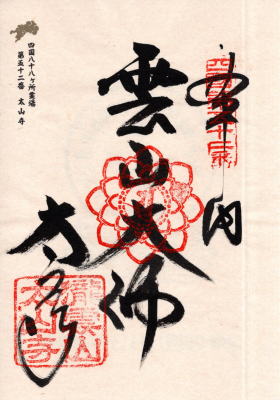 四国八十八ヶ所霊場
第五十二番 太山寺
奉納
雲山大
太山寺
瀧雲山
太山寺